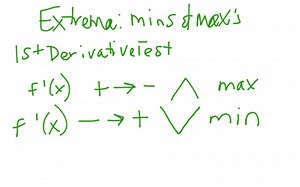 Extrema: mins & max's
1st Derivative Test
f'(x) + → - max
f'(x) — → + min